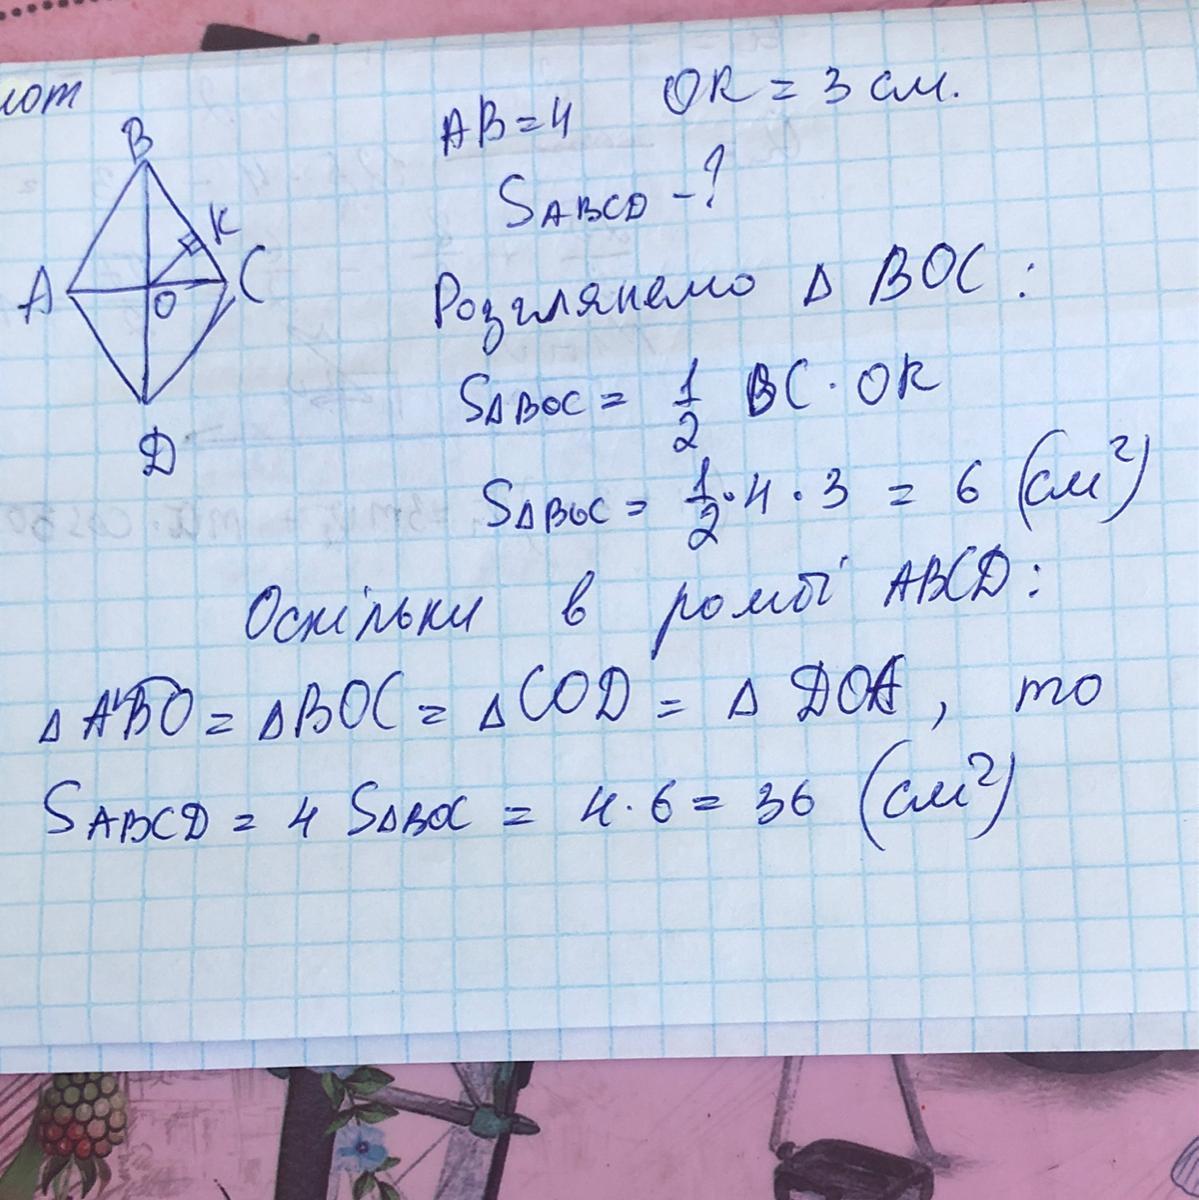 AB = 4 OK = 3 см.
S ABCD - ?
B
K
A
O
C
D
Розглянемо Δ BOC :
SΔBOC = 1/2 BC · OK
SΔBOC = 1/2 · 4 · 3 = 6 (см²)
Оскільки в ромбі ABCD:
Δ ABO = Δ BOC = Δ COD = Δ DOA, то
S ABCD = 4 SΔBOC = 4 · 6 = 36 (см²)